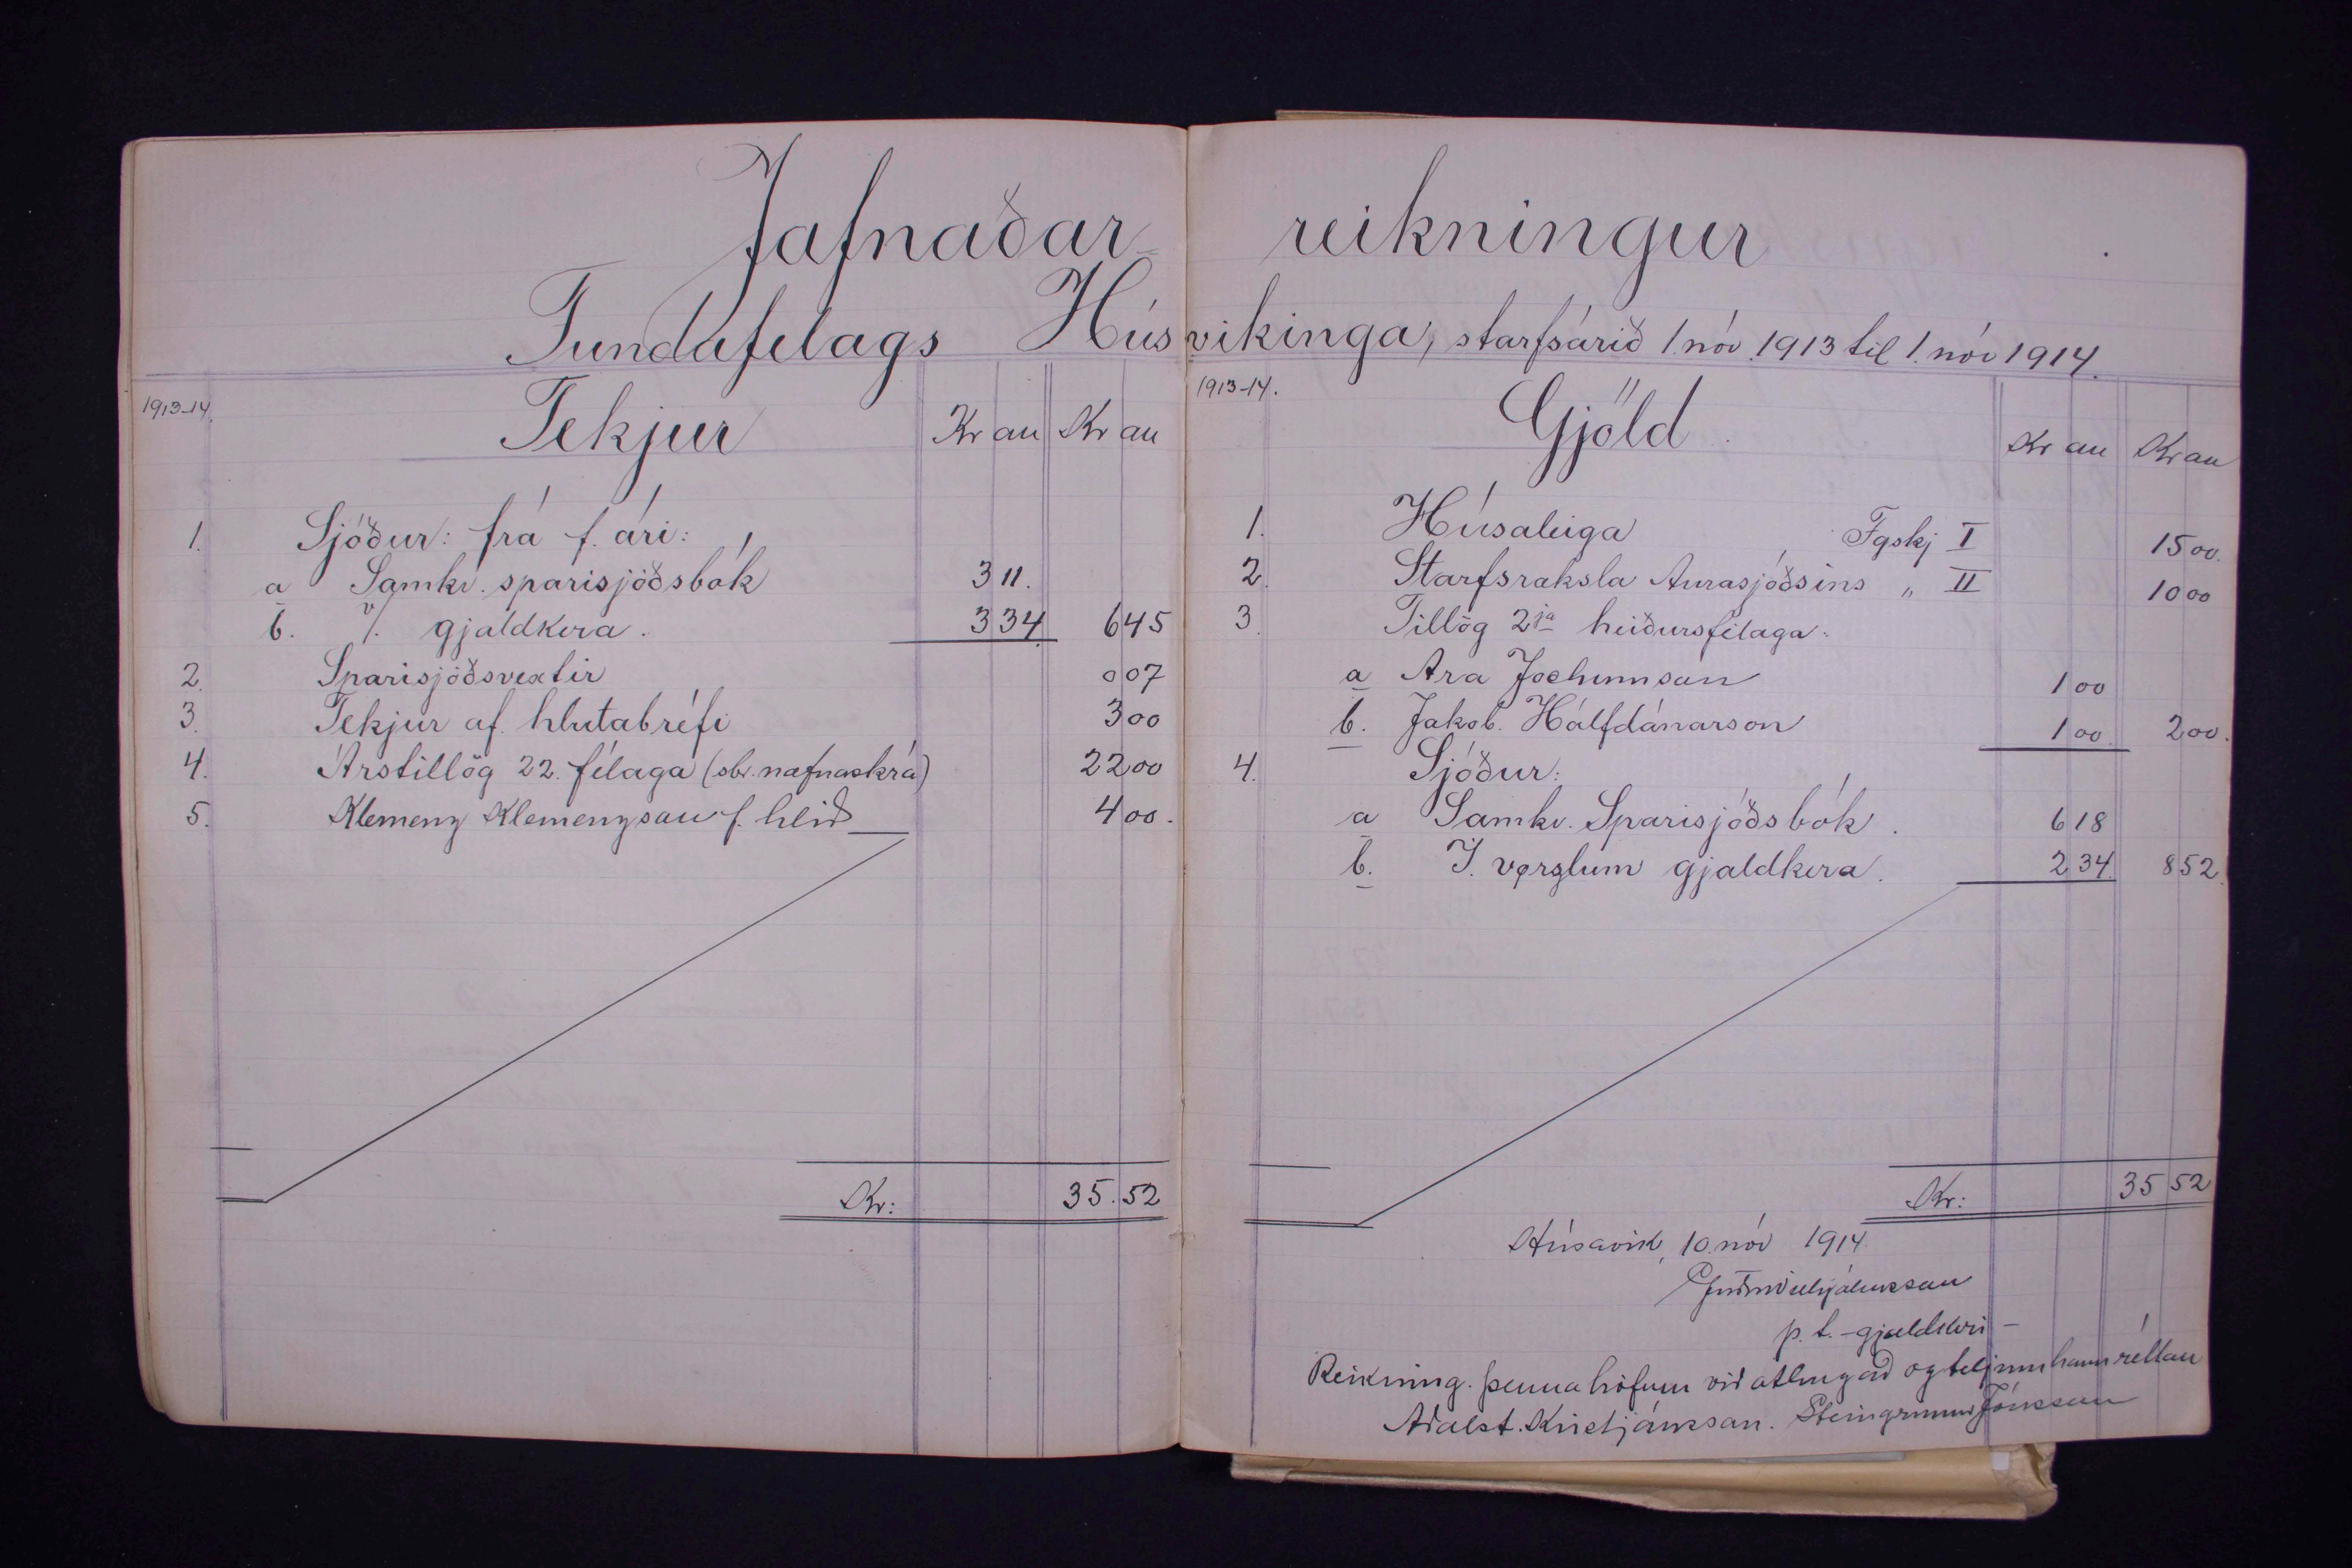 Jafnaðar- reikningur
Fundafelags Húsvikinga, starfsárið 1. nóv. 1913 til 1. nóv 1914.
1913-14.
Tekjur Kr au Kr au
1. Sjóður: frá f. ári:
a Samkv. sparisjóðsbók 3 11.
b. v/. gjaldkera. 3 34 6 45
2. Sparisjóðsvextir 0 07
3. Tekjur af hlutabréfi 3 00
4. Árstillög 22. félaga (sbr. nafnaskrá) 22 00
5. Klemenz Klemenzson f. hlið 4 00.
Kr: 35.52
1913-14.
Gjöld Kr au Kr au
1. Húsaleiga Fgskj I 15 00.
2. Starfsræksla Aurasjóðsins „ II 10 00
3. Tillög 2ja heiðursfélaga.
a Ara Jochumson 1 00
b. Jakob. Hálfdánarson 1 00 2 00.
4. Sjóður:
a Samkv. Sparisjóðsbók. 6 18
b. Í. vørzlum gjaldkera. 2 34 8 52.
Kr: 35 52
Húsavik, 10. nóv 1914
p. t. - gjaldkeri -
Reikning. þenna höfum við athugað og teljum hann réttan
Aðalst. Kristjánsson. Steingrímur Jónsson